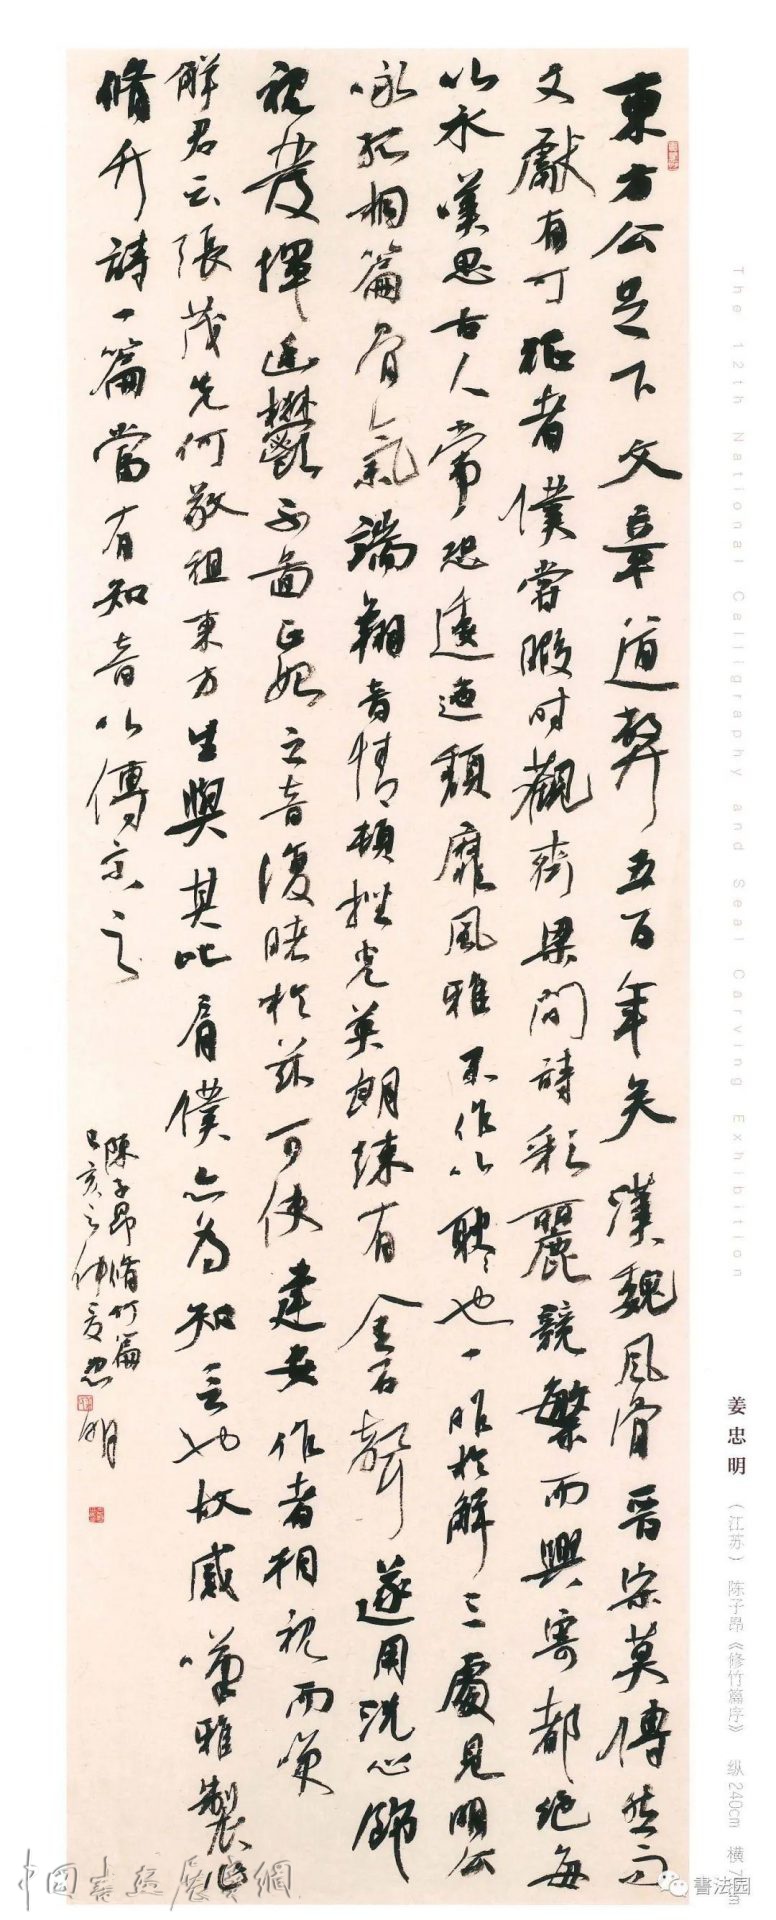 東方公足下文章道弊五百年矣漢魏風骨晉宋莫傳然而
文獻有可徵者僕嘗暇時觀齊梁間詩彩麗競繁而興寄都絕每
以永嘆思古人常恐逶迤頹靡風雅不作以耿〻也一昨於解三處見明公
詠孤桐篇骨氣端翔音情頓挫光英朗練有金石聲遂用洗心飾
視發揮幽鬱不圖正始之音復睹於茲可使建安作者相視而笑
解君云張茂先何敬祖東方生與其比肩僕亦為知言也故感嘆雅製作
修竹詩一篇當有知音以傳示之
陳子昂修竹篇
己亥之仲夏忠明
The 12th National Calligraphy and Seal Carving Exhibition
姜忠明 （江苏） 陈子昂《修竹篇序》 纵240cm 横
書法园